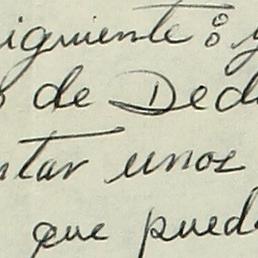 iguiente: y
o de Ded
ntar unos
que pued